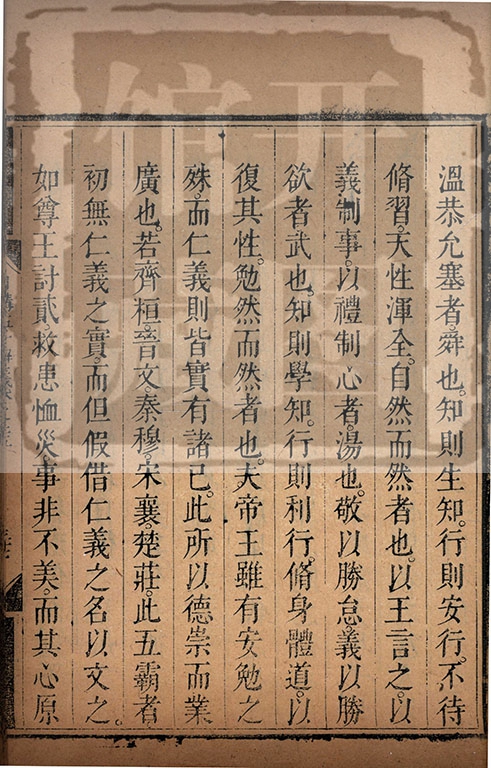 溫恭允塞者。舜也。知則生知。行則安行。不待
脩習。天性渾全。自然而然者也。以王言之。以
義制事。以禮制心者。湯也。敬以勝怠。義以勝
欲者。武也。知則學知。行則利行。脩身體道。以
復其性。勉然而然者也。夫帝王雖有安勉之
殊。而仁義則皆實有諸己。此所以德崇而業
廣也。若齊桓。晉文秦穆。宋襄。楚莊。此五霸者
初無仁義之實。而但假借仁義之名以文之。
如尊王討貳。救患恤災。事非不美。而其心原